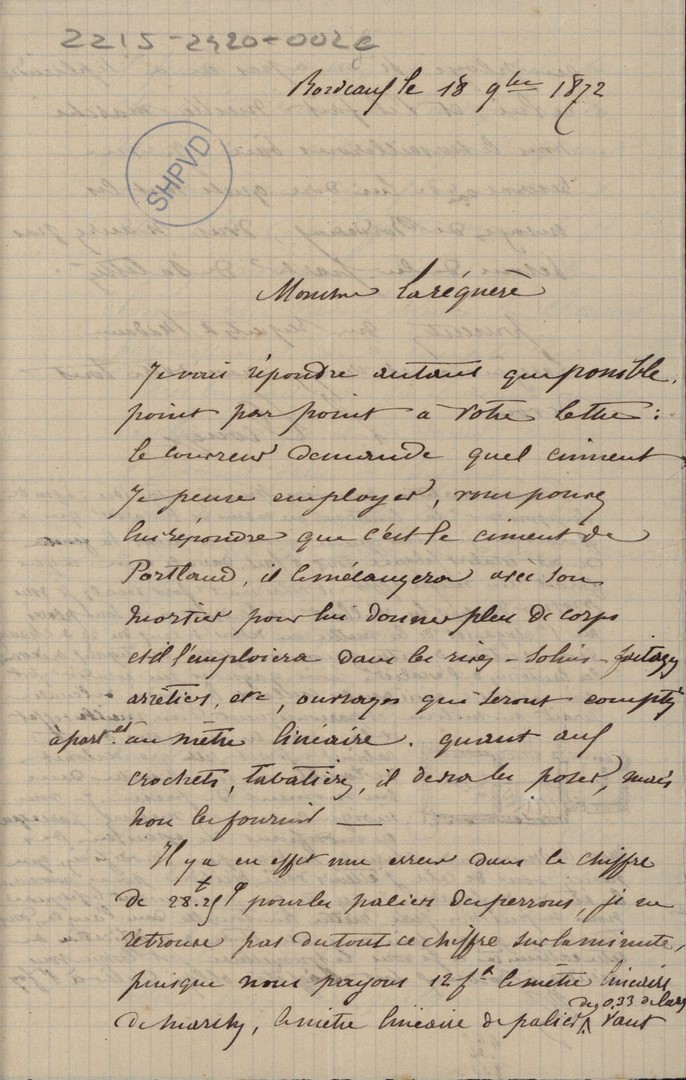 2215-2420-002e
Bordeaux le 18 9bre 1872
SHPVD
Monsieur Laréguère
Je vais répondre autant que possible,
point par point à votre lettre :
le couvreur demande quel ciment
je pense employer, vous pouvez
lui répondre que c'est le ciment de
Portland, il le mélangera avec son
mortier pour lui donner plus de corps
et il l'emploiera dans les rives - solins - faitages
arrêtiers, etc, ouvrages qui seront comptés
à part et au mètre linéaire. quant aux
crochets, tabatières, il devra les poser, mais
non les fournir —
Il y a en effet une erreur dans le chiffre
de 28f.25c pour les paliers des perrons, je ne
retrouve pas du tout ce chiffre sur la minute,
puisque nous payons 12f le mètre linéaire
de 0,33 de larg
de marches, le mètre linéaire de palier vaut